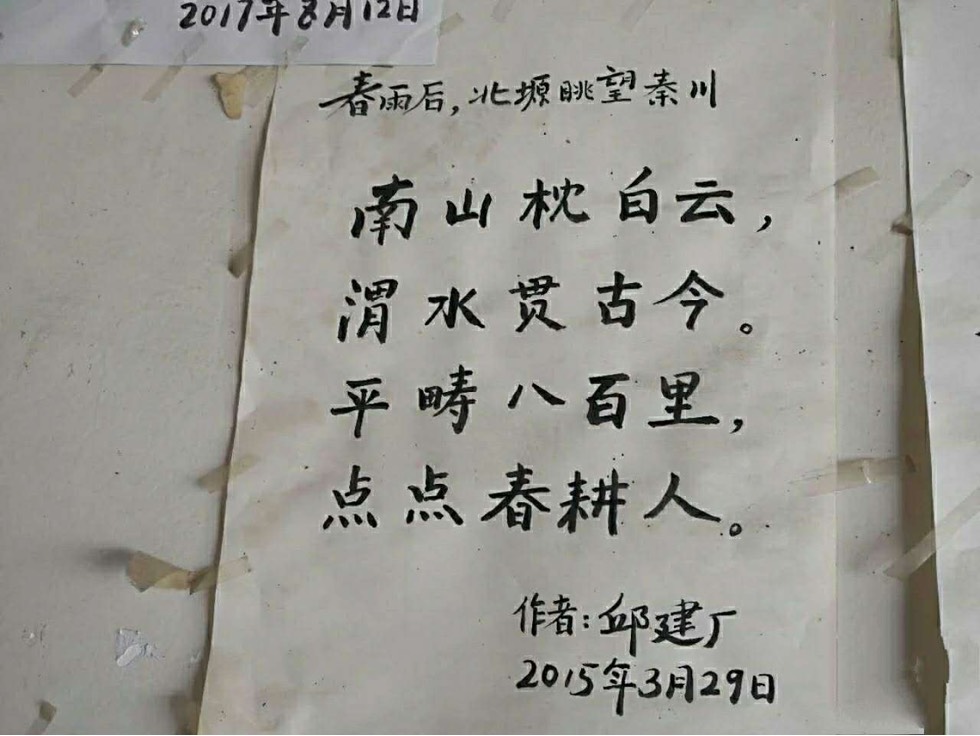 2017年8月12日
春雨后,北塬眺望秦川
南山枕白云,
渭水贯古今。
平畴八百里,
点点春耕人。
作者:邱建厂
2015年3月29日